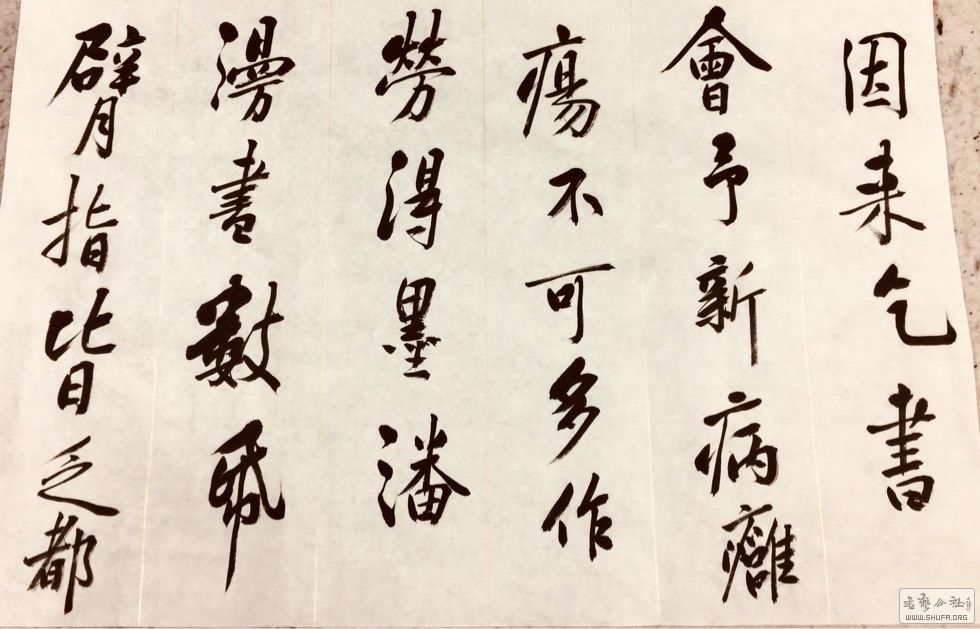 因来乞書
會予新病癰
瘍不可多作
勞得墨潘
漫書數帋
臂指皆乏都
書藝公社
WWW.SHUFA.ORG